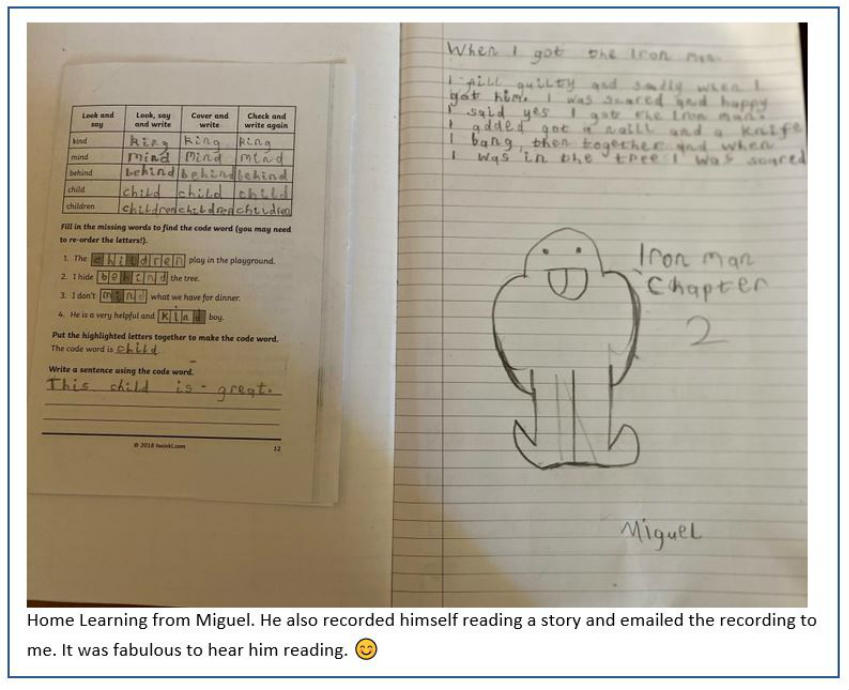 Look and say Look, say and write Cover and write Check and write again
kind king king king
mind mind Mind mind
behind behind behind behind
child child child child
children children children children
Fill in the missing words to find the code word (you may need
to re-order the letters!).
1. The children play in the playground.
2. I hide behind the tree.
3. I don't mind what we have for dinner.
4. He is a very helpful and kind boy.
Put the highlighted letters together to make the code word.
The code word is child
Write a sentence using the code word.
This child is great.
© 2018 twinkl.com 12
When I got the Iron man.
I fill guilty and sadly when I
got him. I was scared and happy
I said yes I got the Iron man.
I added got a naill and a knife
I bang, then together and when
I was in the tree I was scared
Iron man
Chapter
2
Miguel
Home Learning from Miguel. He also recorded himself reading a story and emailed the recording to
me. It was fabulous to hear him reading.